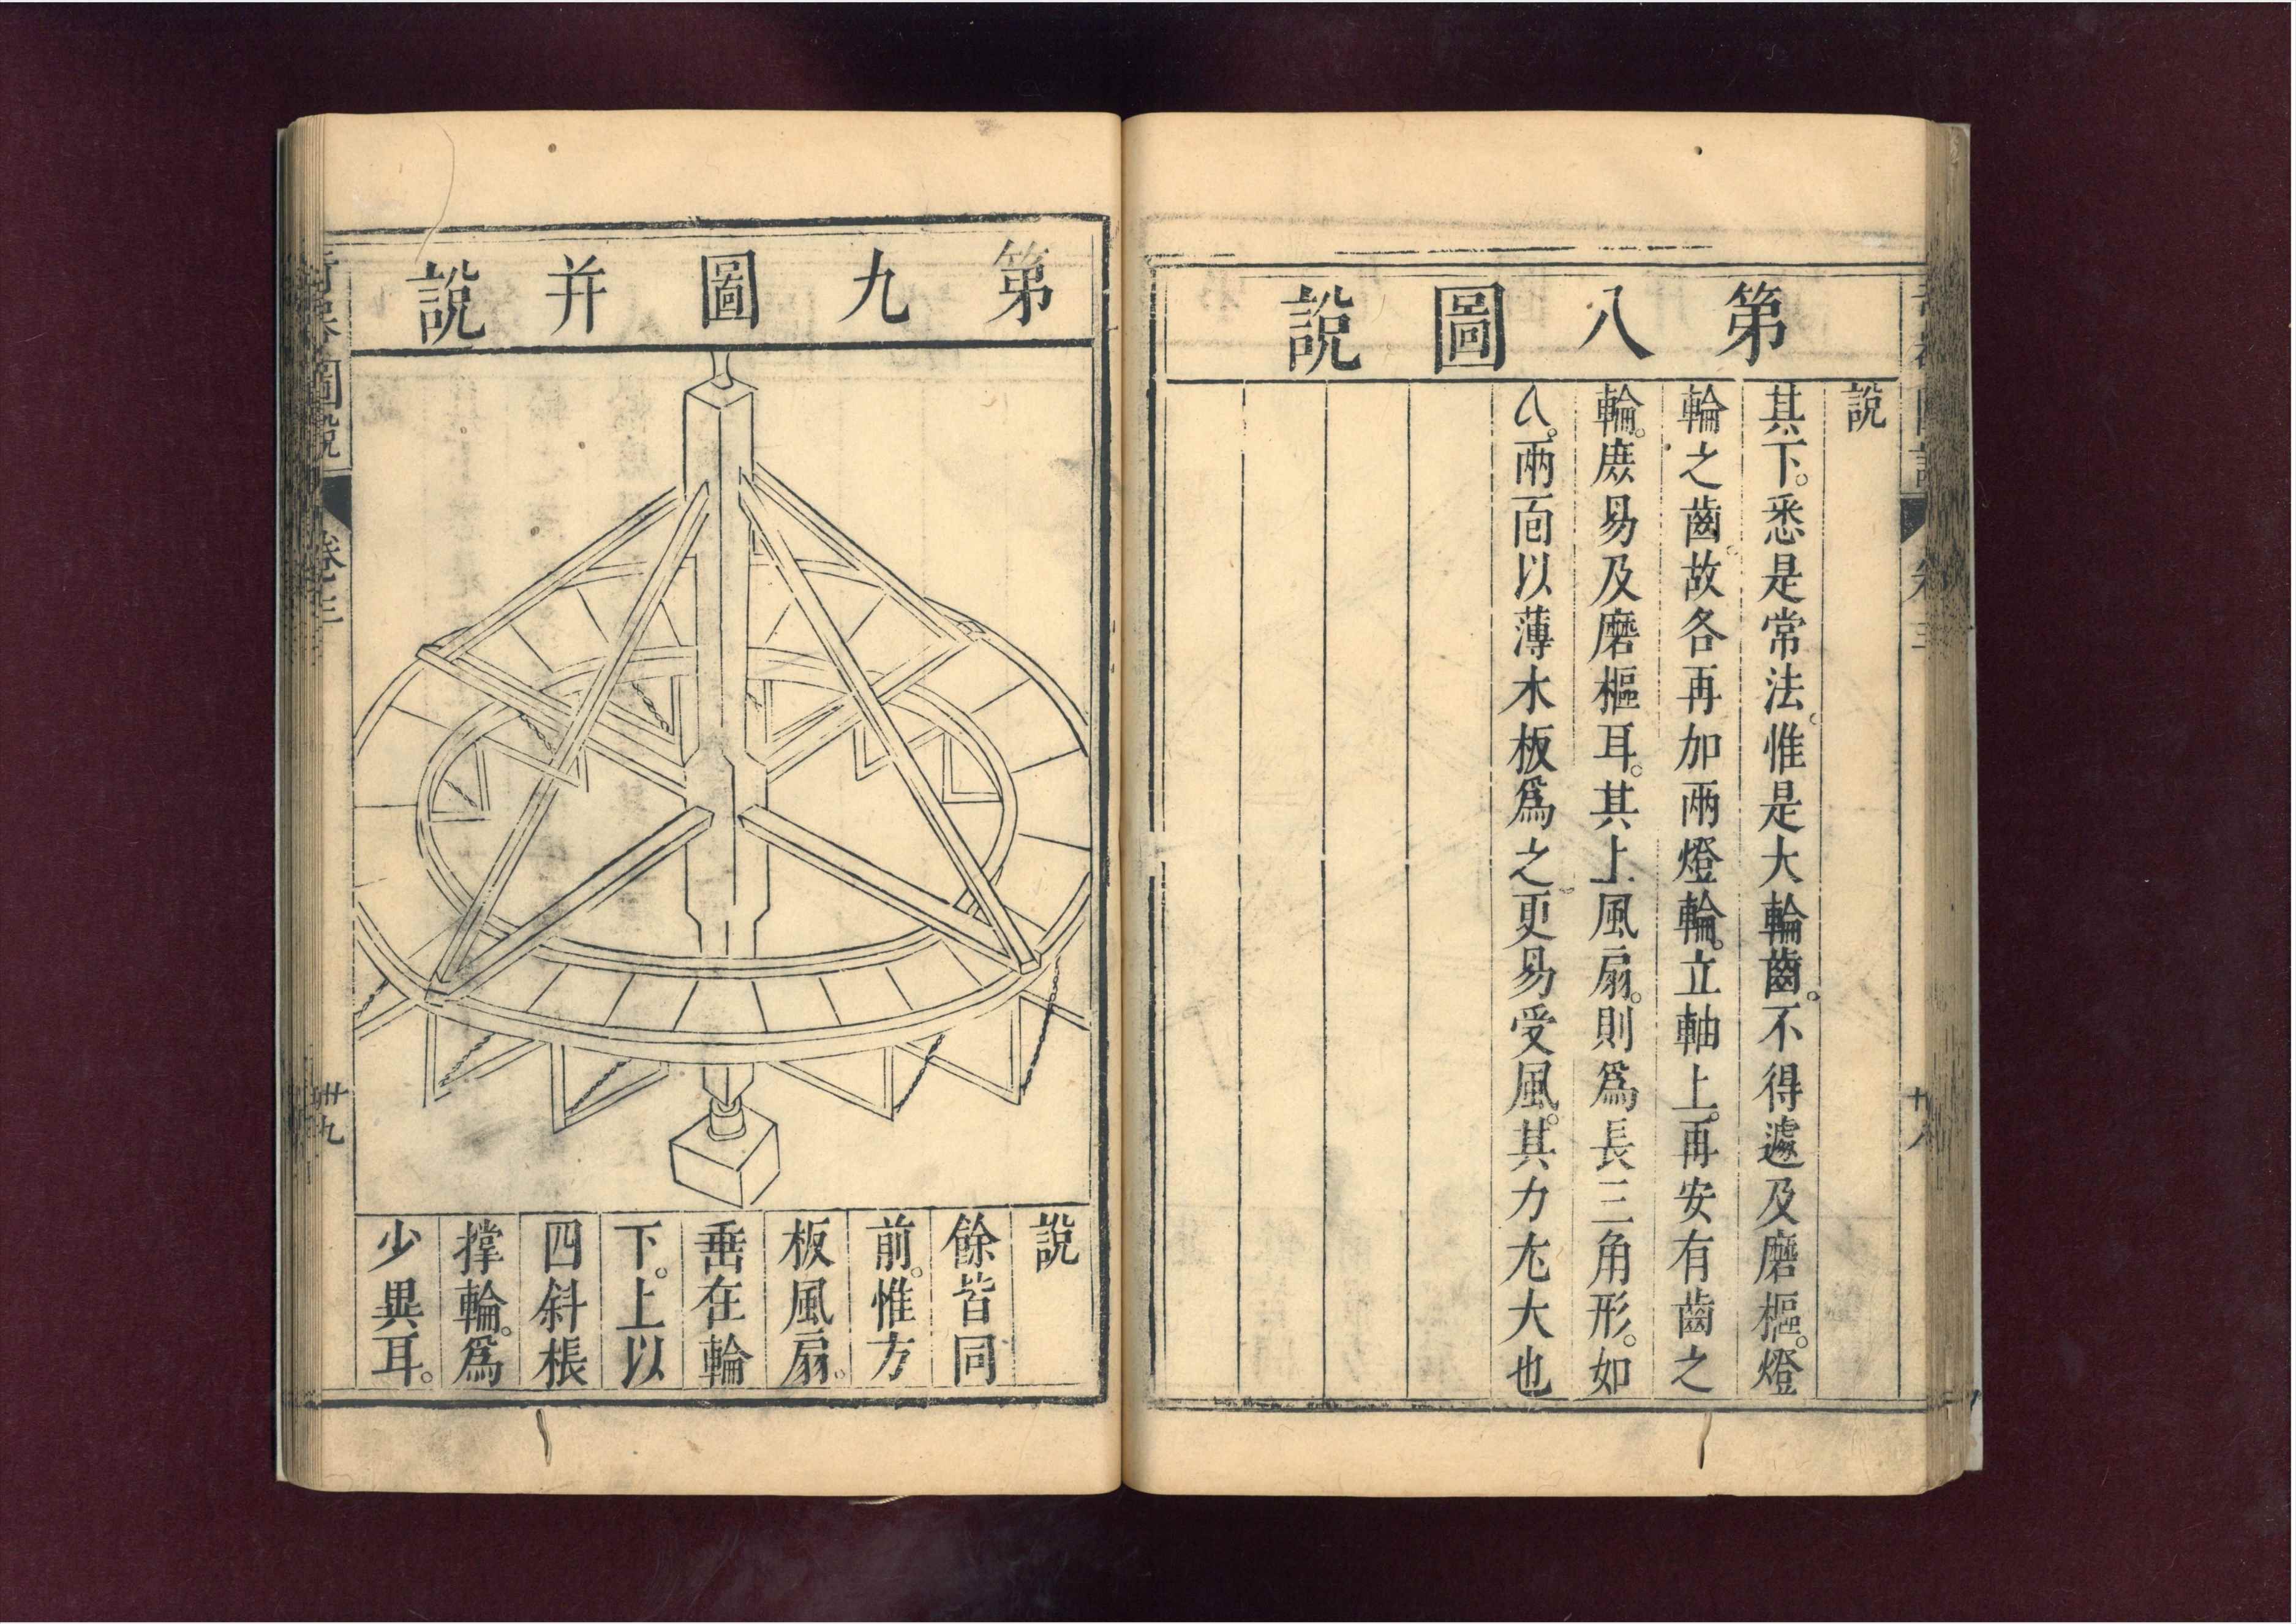 第八圖說
說
其下。悉是常法。惟是大輪齒。不得遽及磨樞。燈
輪之齒。故各再加兩燈輪。立軸上。再安有齒之
輪。庶易及磨樞耳。其上風扇。則爲長三角形。如
兩面以薄木板爲之。更易受風。其力尢大也
第九圖并說
說
餘皆同
前。惟方
板風扇。
垂在輪
下。上以
四斜桭
撑輪。爲
少異耳。
圖說
卷三
卅九